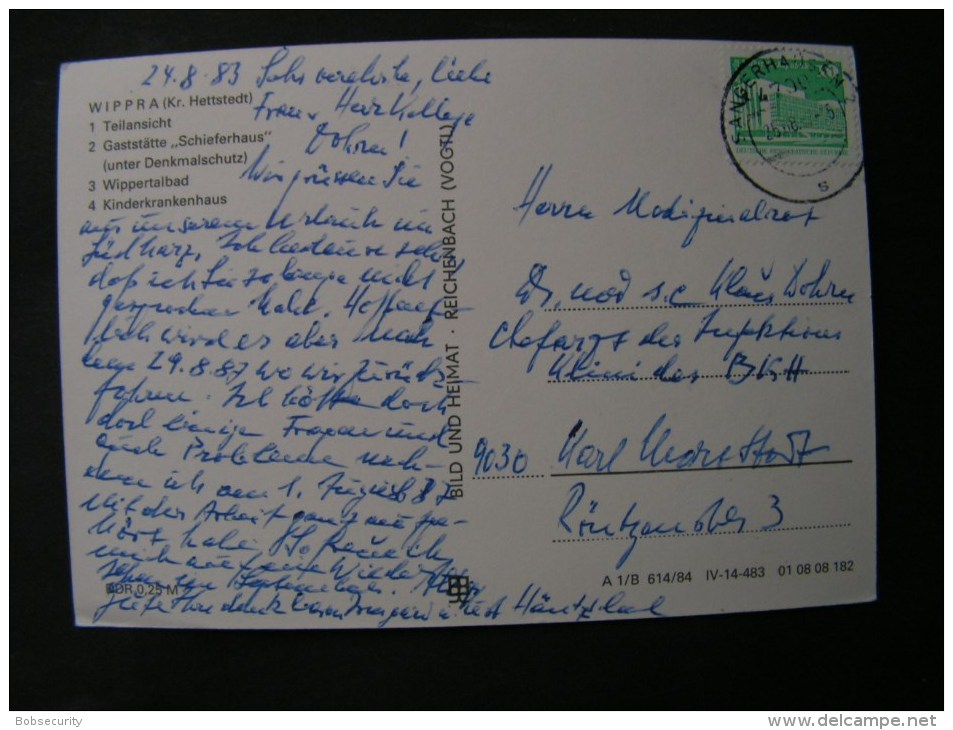 24.8.83 Sehr verehrte, liebe
Frau, Herr Kollege
Dohrn!
WIPPRA (Kr. Hettstedt)
1 Teilansicht
2 Gaststätte „Schieferhaus"
(unter Denkmalschutz)
3 Wippertalbad
4 Kinderkrankenhaus
Wir grüssen Sie
aus unserem Urlaub im
Südharz. Ich bedaure sehr
daß ich Sie so lange nicht
gesprochen habe.
wird es aber nach
dem 29.8.87 wo wir zurück-
fahren. Ich hätte doch
doch einige Fragen und
auch Probleme nach-
dem ich am 1. 87
mit der Arbeit ganz aufge-
hört habe. So freue ich
mich auf ein Wieder-
sehen im September.
Ihre dankbaren und Häntzschel
DDR 0,25 M
BILD UND HEIMAT · REICHENBACH (VOGTL)
SANGERHAUSEN 2
4700
Herrn Medizinalrat
Dr. med s.c Klaus Dohrn
Chefarzt der Infektions
Klinik des BKH
9030 Karl Marx Stadt
Röntgenstr 3
A 1/B 614/84 IV-14-483 01 08 08 182
Bobsecurity
www.delcampe.net